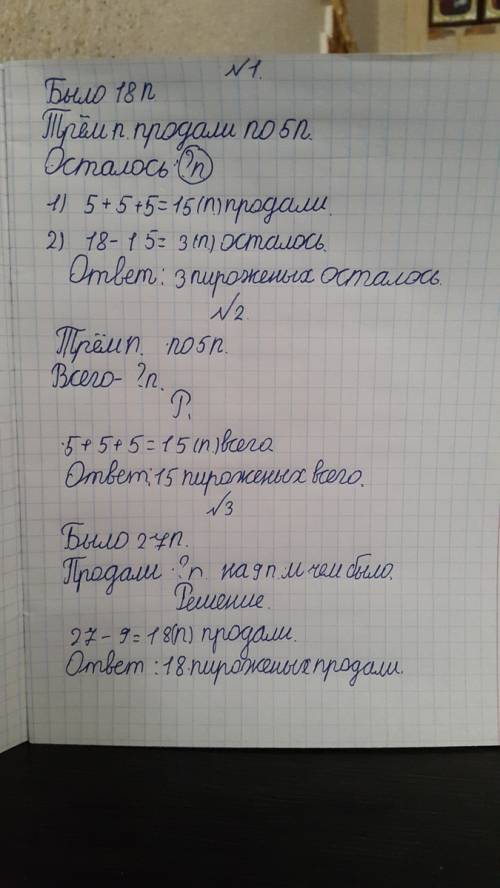 №1.
Было 18п.
Трём п. продали по 5п.
Осталось ?п
1) 5+5+5=15(п) продали.
2) 18-15= 3(п) осталось.
Ответ: 3 пироженых осталось.
№2.
Трём п. по 5п.
Всего- ?п.
Р.
5+5+5=15(п) всего.
Ответ: 15 пироженых всего.
№3
Было 27п.
Продали ?п. на 9 п. м чем было.
Решение.
27-9=18(п) продали.
Ответ: 18 пироженых продали.